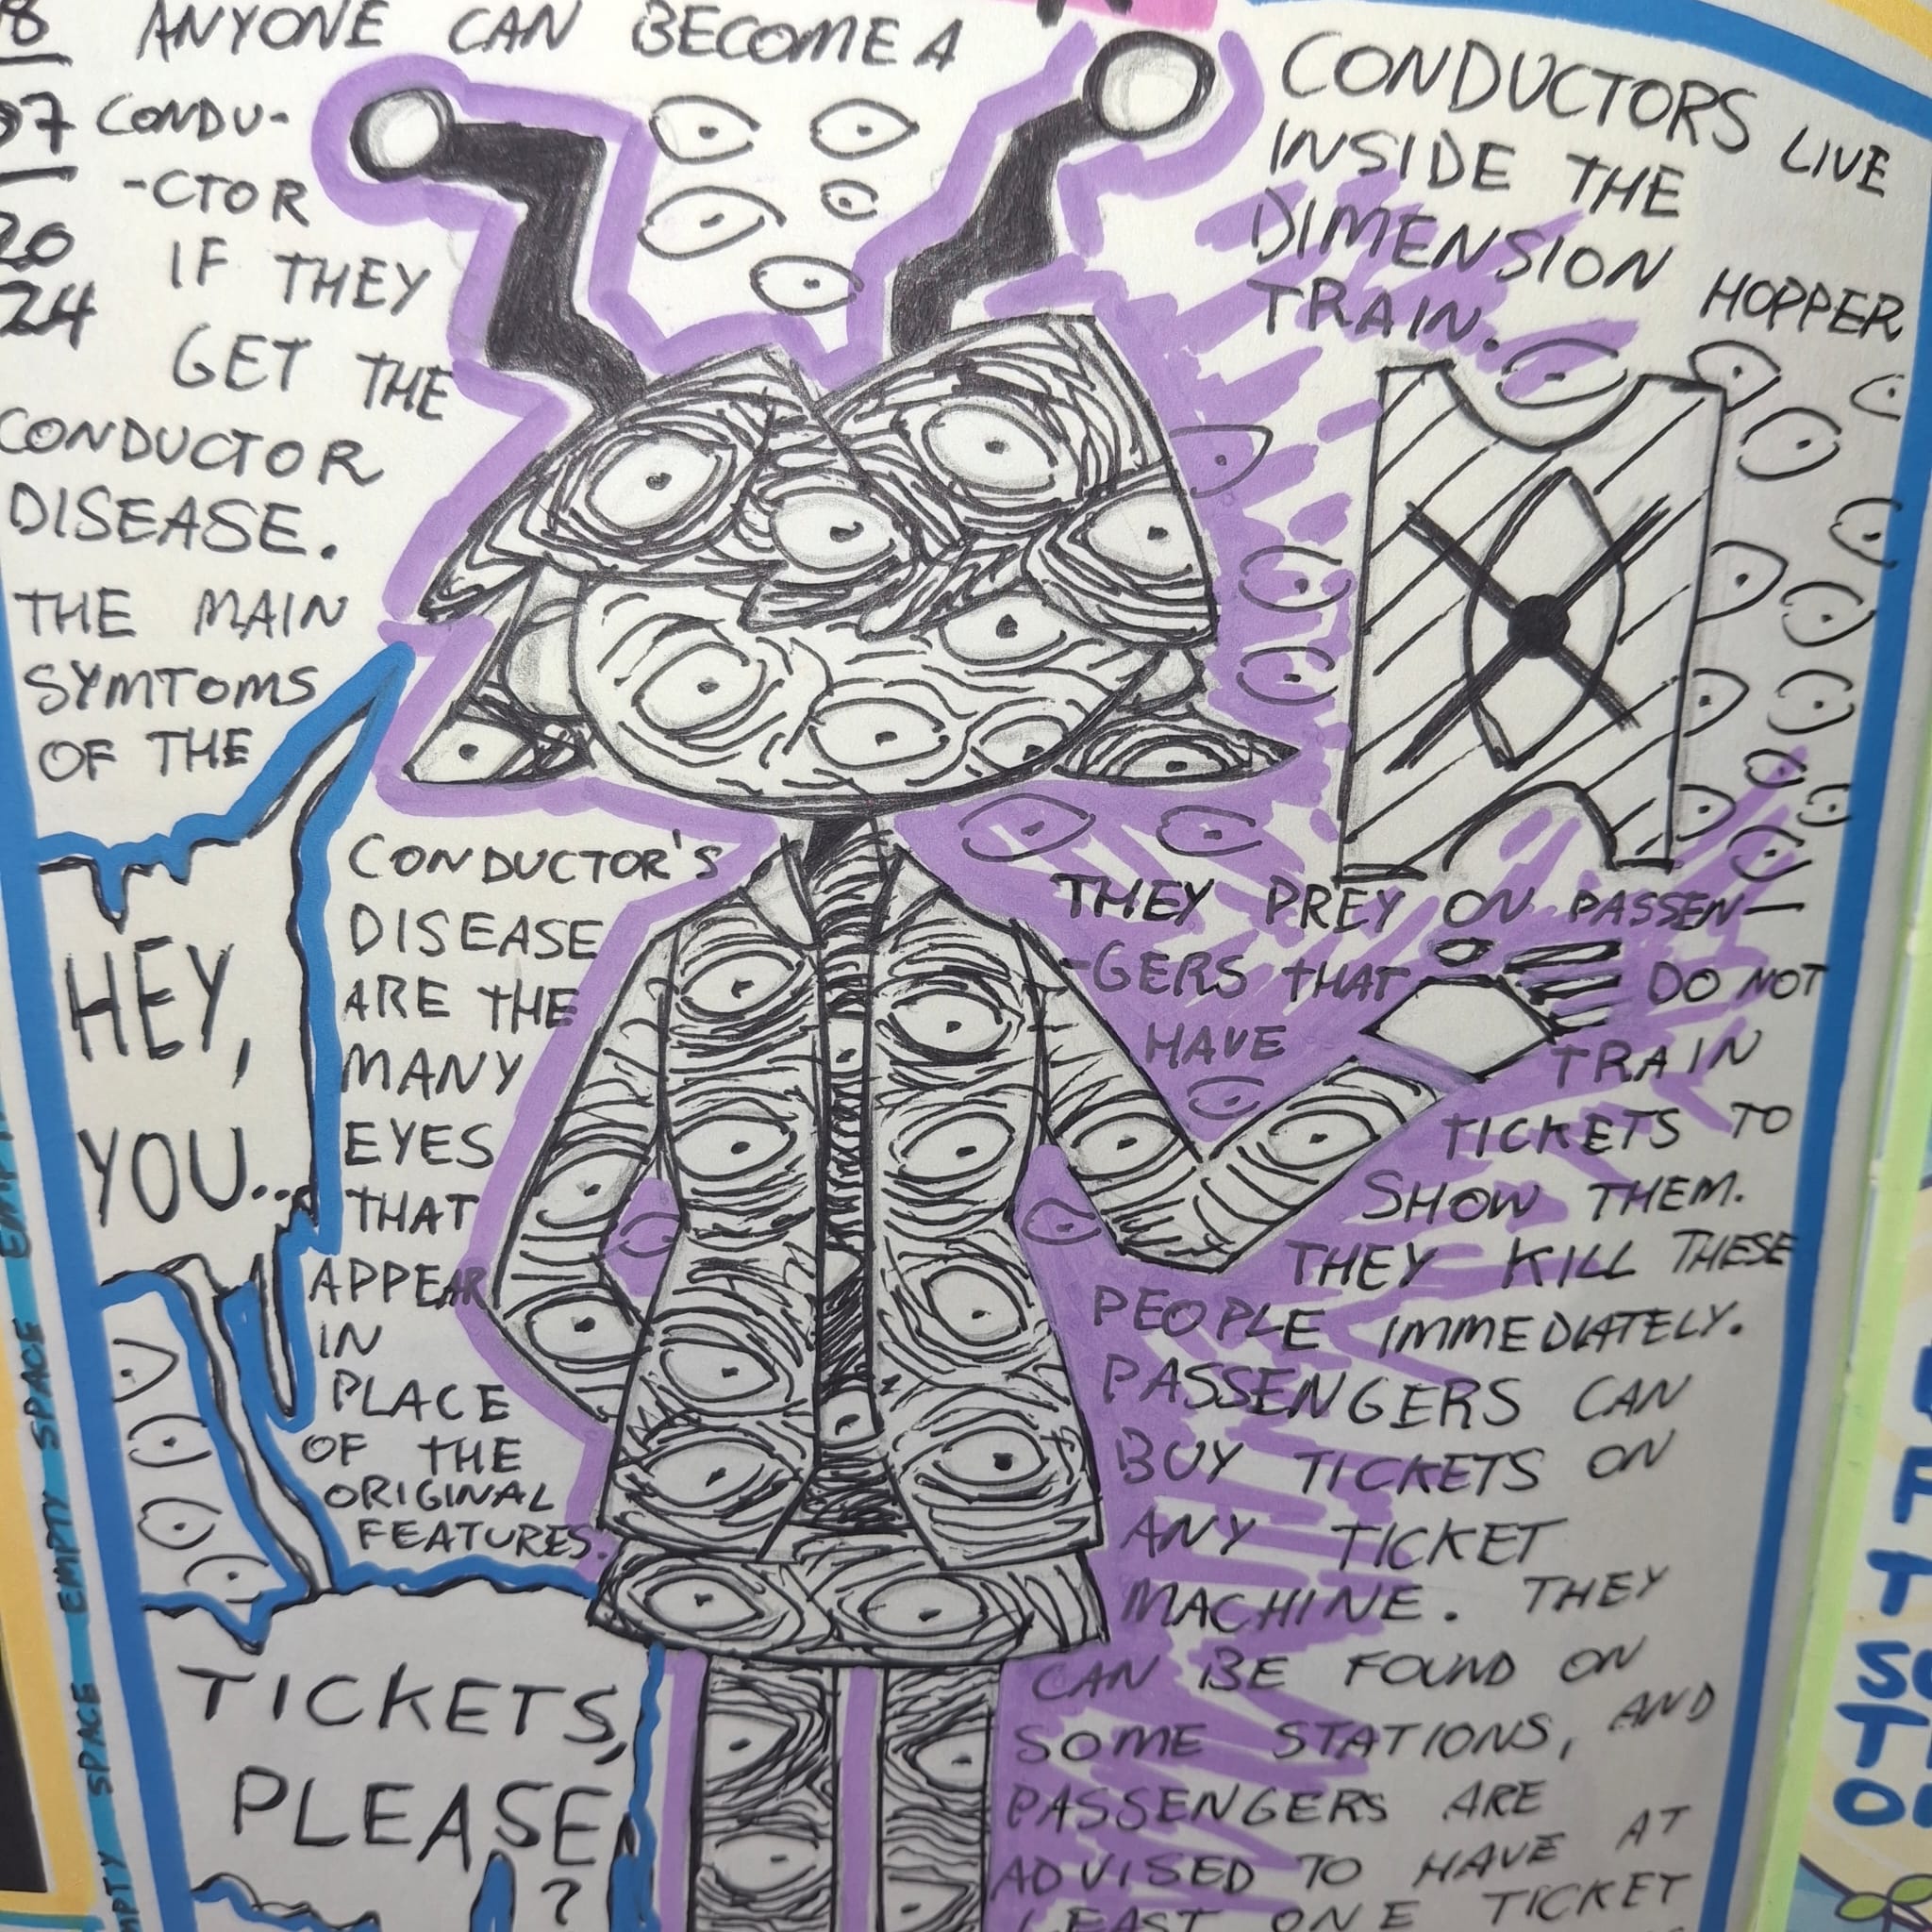 8
07
20
24
ANYONE CAN BECOME A
CONDU-
-CTOR
IF THEY
GET THE
CONDUCTOR
DISEASE.
THE MAIN
SYMTOMS
OF THE
CONDUCTOR'S
DISEASE
ARE THE
MANY
EYES
THAT
APPEAR
IN
PLACE
OF THE
ORIGINAL
FEATURES.
HEY,
YOU...
TICKETS,
PLEASE
?
CONDUCTORS LIVE
INSIDE THE
DIMENSION HOPPER
TRAIN.
THEY PREY ON PASSEN-
-GERS THAT DO NOT
HAVE TRAIN
TICKETS TO
SHOW THEM.
THEY KILL THESE
PEOPLE IMMEDIATELY.
PASSENGERS CAN
BUY TICKETS ON
ANY TICKET
MACHINE. THEY
CAN BE FOUND ON
SOME STATIONS, AND
PASSENGERS ARE
ADVISED TO HAVE AT
LEAST ONE TICKET
EMPTY SPACE EMPTY SPACE EMPTY SPACE